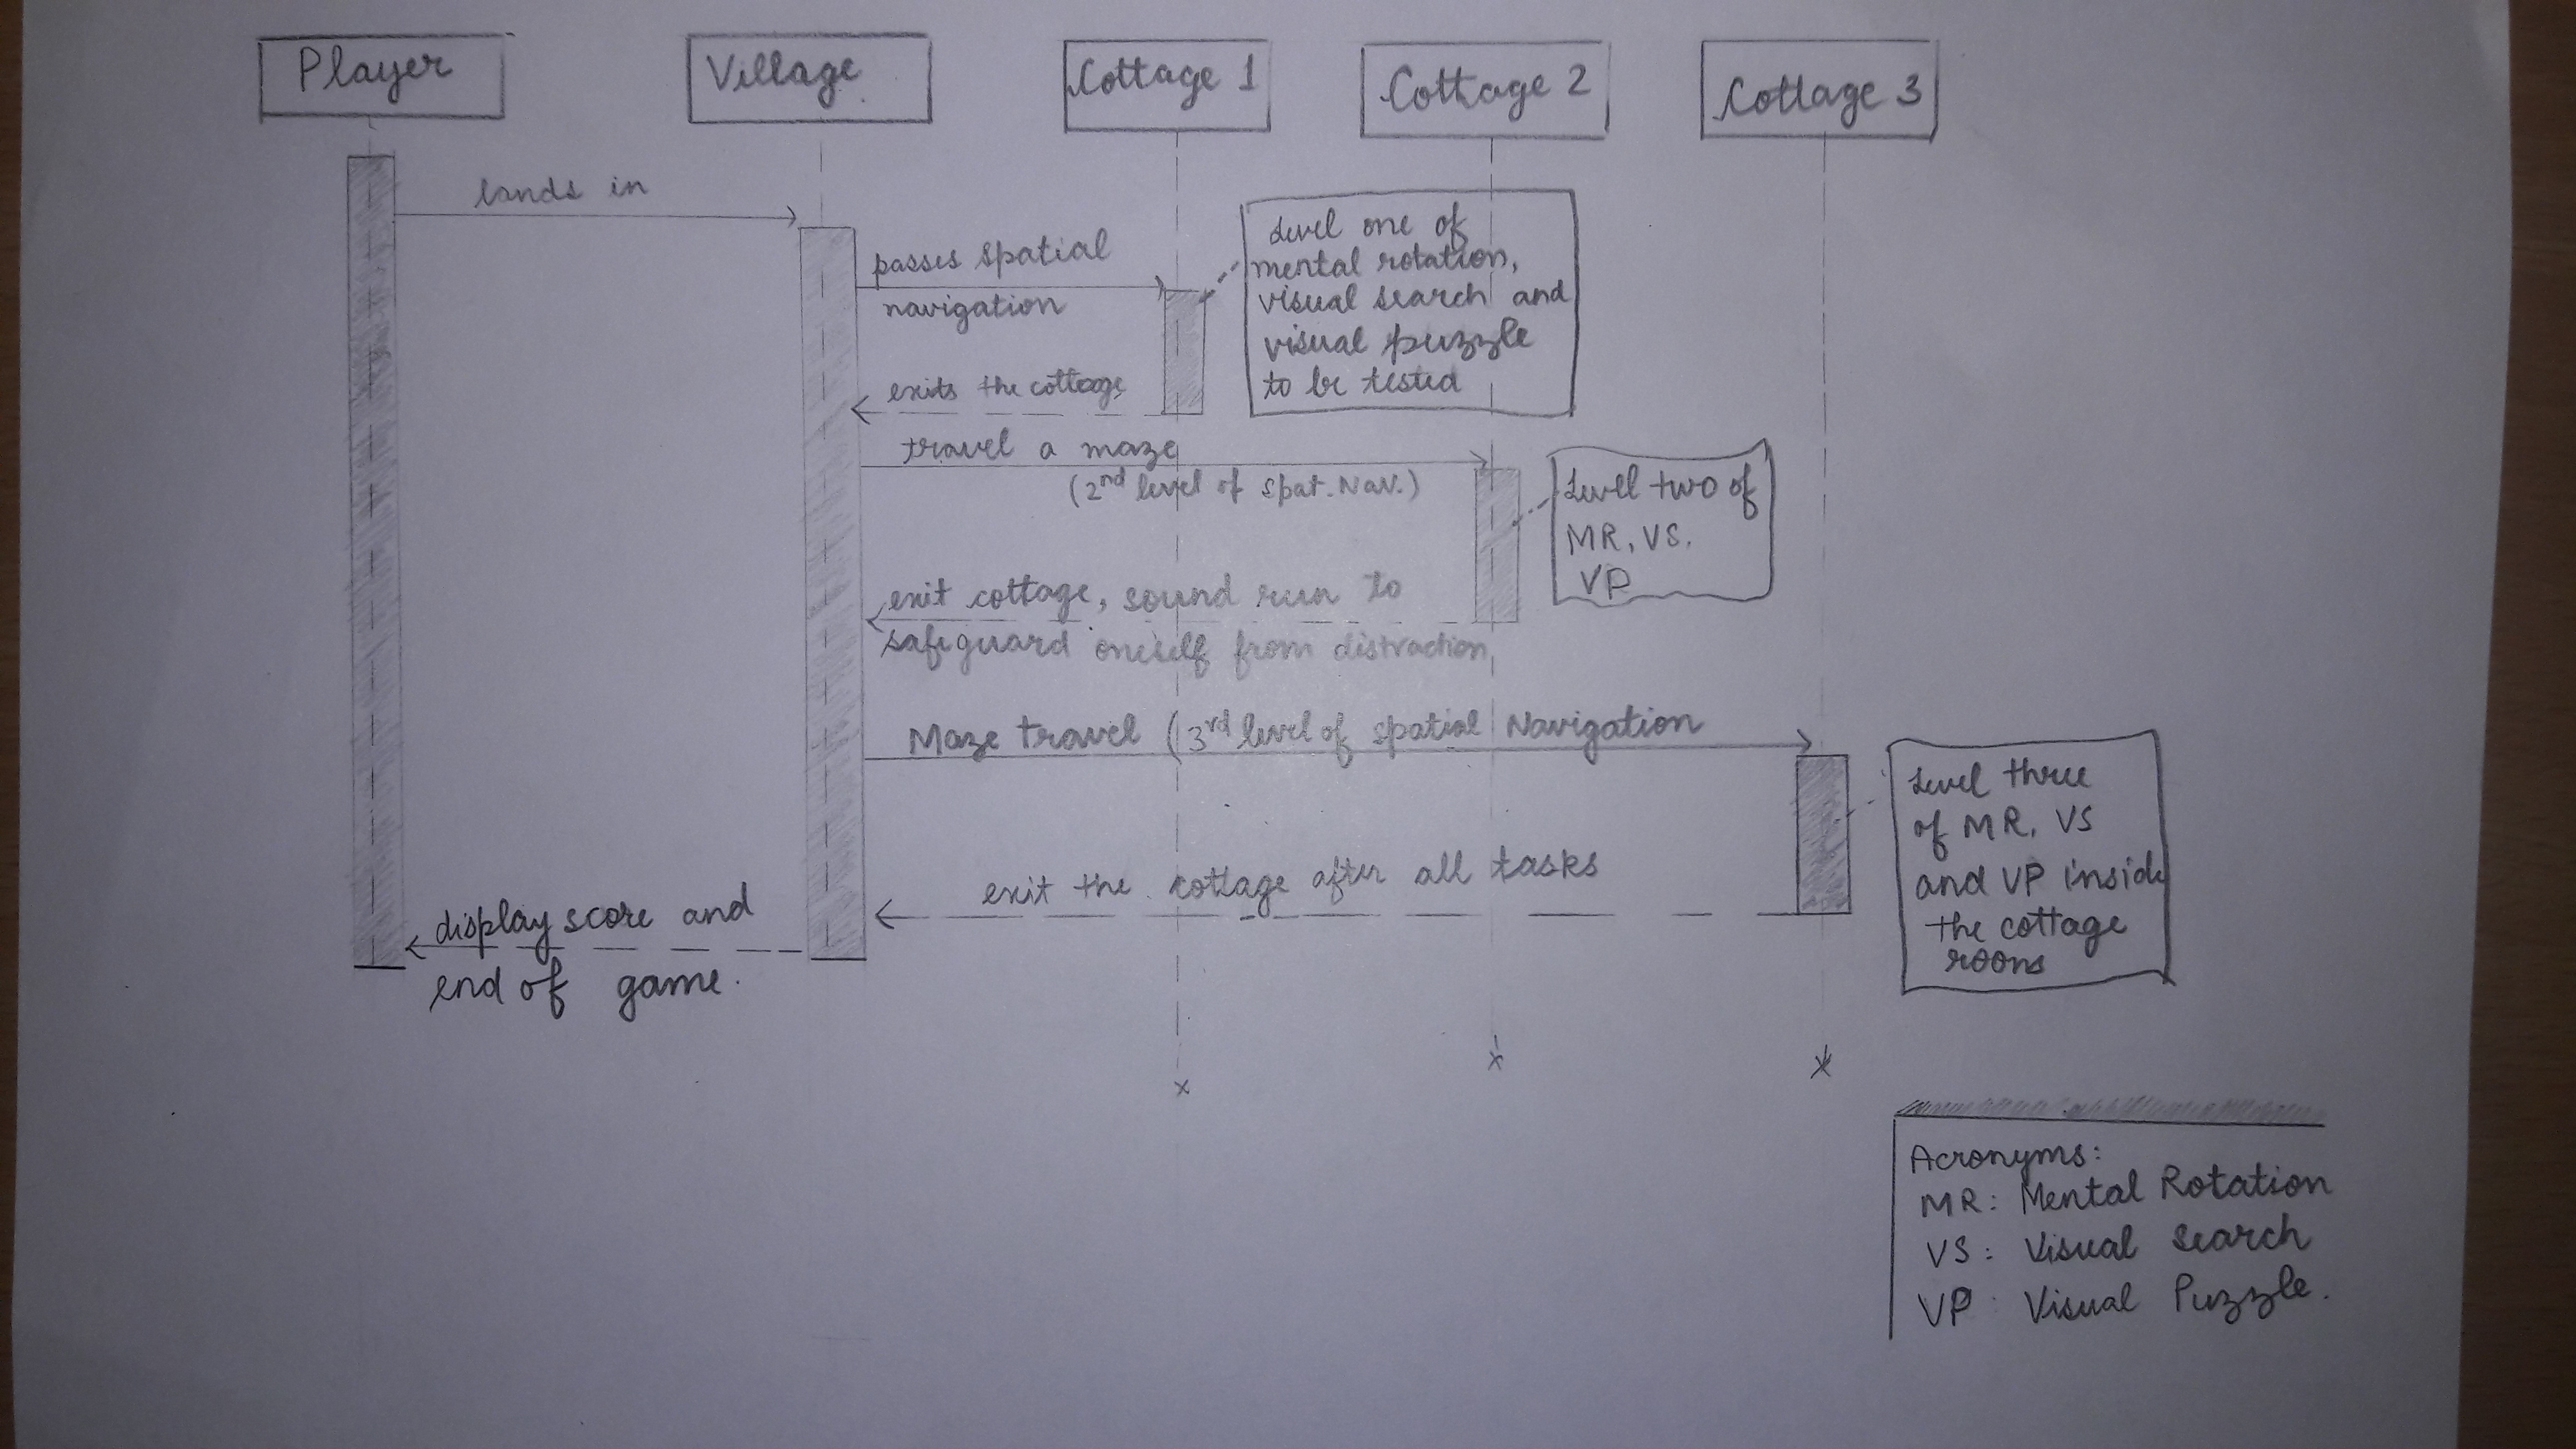 Player
Village
Cottage 1
Cottage 2
Cottage 3
lands in
passes spatial
navigation
Level one of
mental rotation,
visual search and
visual puzzle
to be tested
exits the cottage
travel a maze
(2nd level of spat. Nav.)
Level two of
MR, VS.
VP
exit cottage, sound run to
safeguard oneself from distraction
Maze travel (3rd level of spatial Navigation
Level three
of MR, VS
and VP inside
the cottage
rooms
exit the cottage after all tasks
display score and
end of game.
Acronyms:
MR: Mental Rotation
VS: Visual Search
VP: Visual Puzzle.